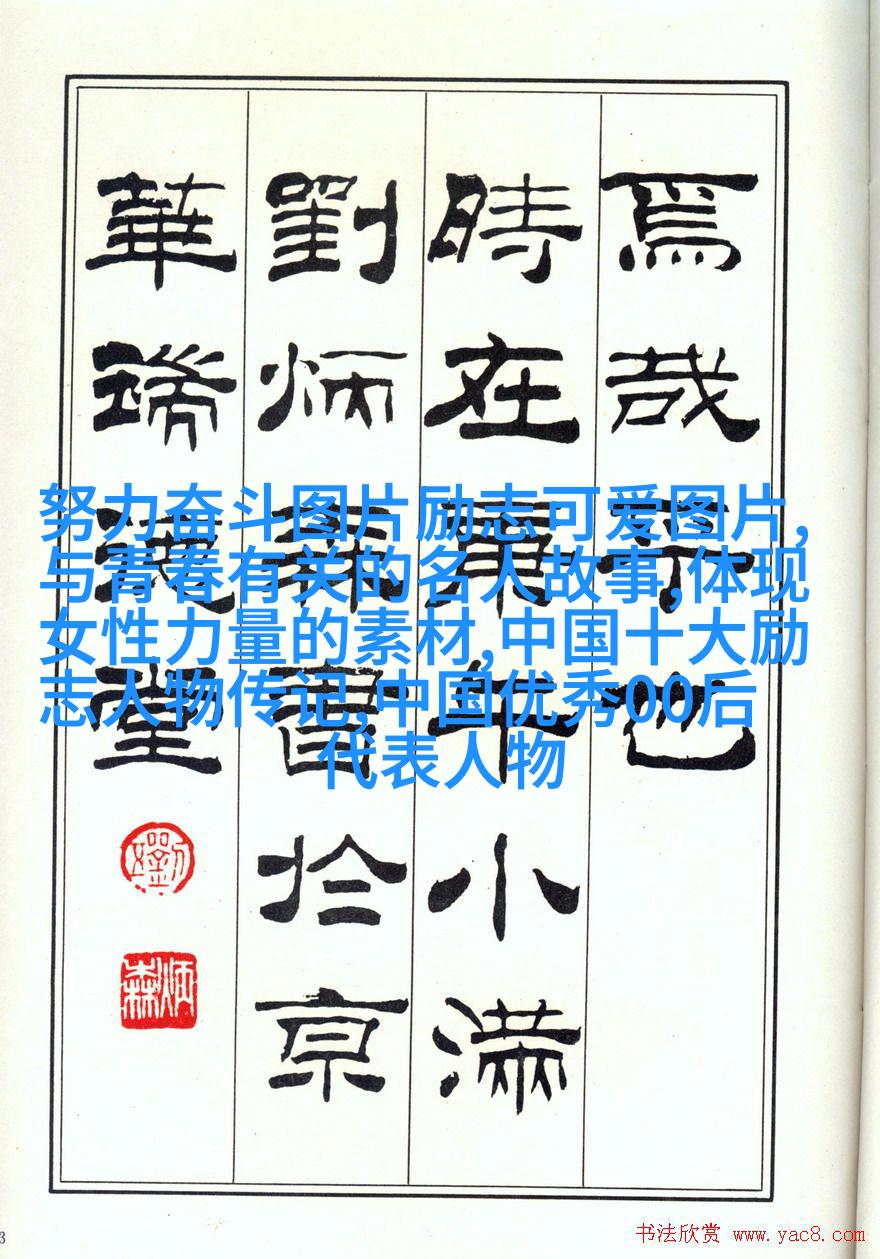 焉哉乎也
時在庚午小滿
劉炳森書於京
華堂
炳森
努力奋斗图片励志可爱图片,
与青春有关的名人故事,体现
女性力量的素材,中国十大励
志人物传记,中国优秀00后
代表人物
书法欣赏 www.yac8.com
3